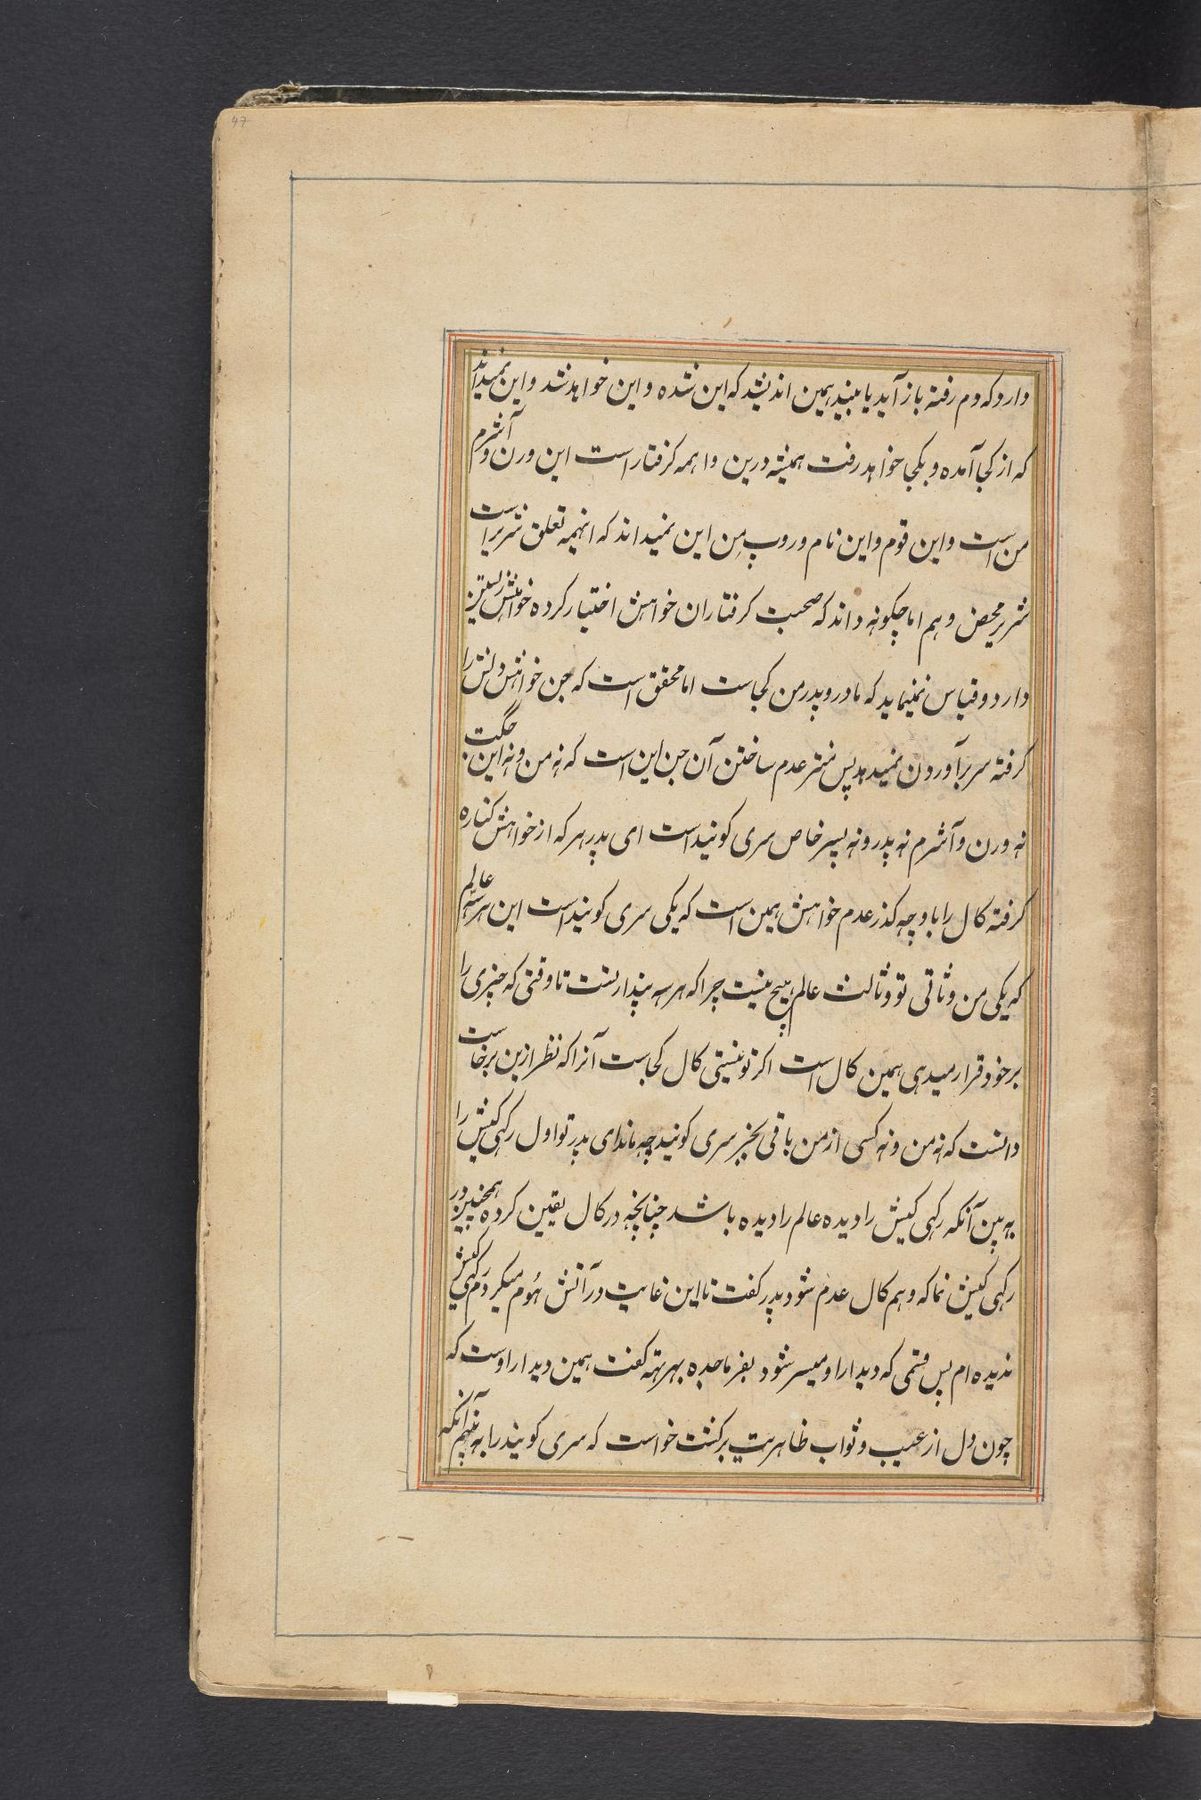 47
دارد که دم رفته باز آید یا ببیند همین اندیشد که این نشده و این خواهد نشد و این نمیداند
که از کجا آمده و بکجا خواهد رفت همیشه درین واهمه گرفتار است این ورن و آشرم
من است و این قوم و این نام و روپ من این نمیداند که اینهمه تعلق شریر است
شریر محض وهم اما چگونه داند که صحبت گرفتاران خواهش اختیار کرده خواهش زیستن
دارد و قیاس نمینماید که مادر و پدر من کجاست اما محقق است که جن خواهش دلش را
گرفته سر برآوردن نمیدهد پس منتر عدم ساختن آن جن این است که نه من و نه این جگت
نه ورن و آشرم نه پدر و نه پسر خاص سری گوبند است ای پدر هر که از خواهش کناره
گرفته کال را با و چه گذر عدم خواهش همین است که یکی سری گوبند است این هر سه عالم
که یکی من و ثانی تو و ثالث عالم هیچ نیست چرا که هر سه پندار است تا وقتی که چیزی را
بر خود قرار میدهی همین کال است اگر تو نیستی کال کجاست آنرا که نظر ازین برخاست
دانست که نه من و نه کسی از من باقی بجز سری گوبند چه ماند ای پدر تو اول رکهی کیش را
به بین آنکه رکهی کیش را دیده عالم را دیده باشد چنانچه در کال یقین کرده همچنین در
رکهی کیش نما که وهم کال عدم شود پدر گفت تا این غایت در آتش هوم میکردم رکهی کیش
ندیده ام پس قتمی که دیدار او میسر شود بفرما جده بهرتهه گفت همین دیدار اوست که
چون دل از عیب و ثواب ظاهریت برگشت خواست که سری گوبند را به بینم آنکه